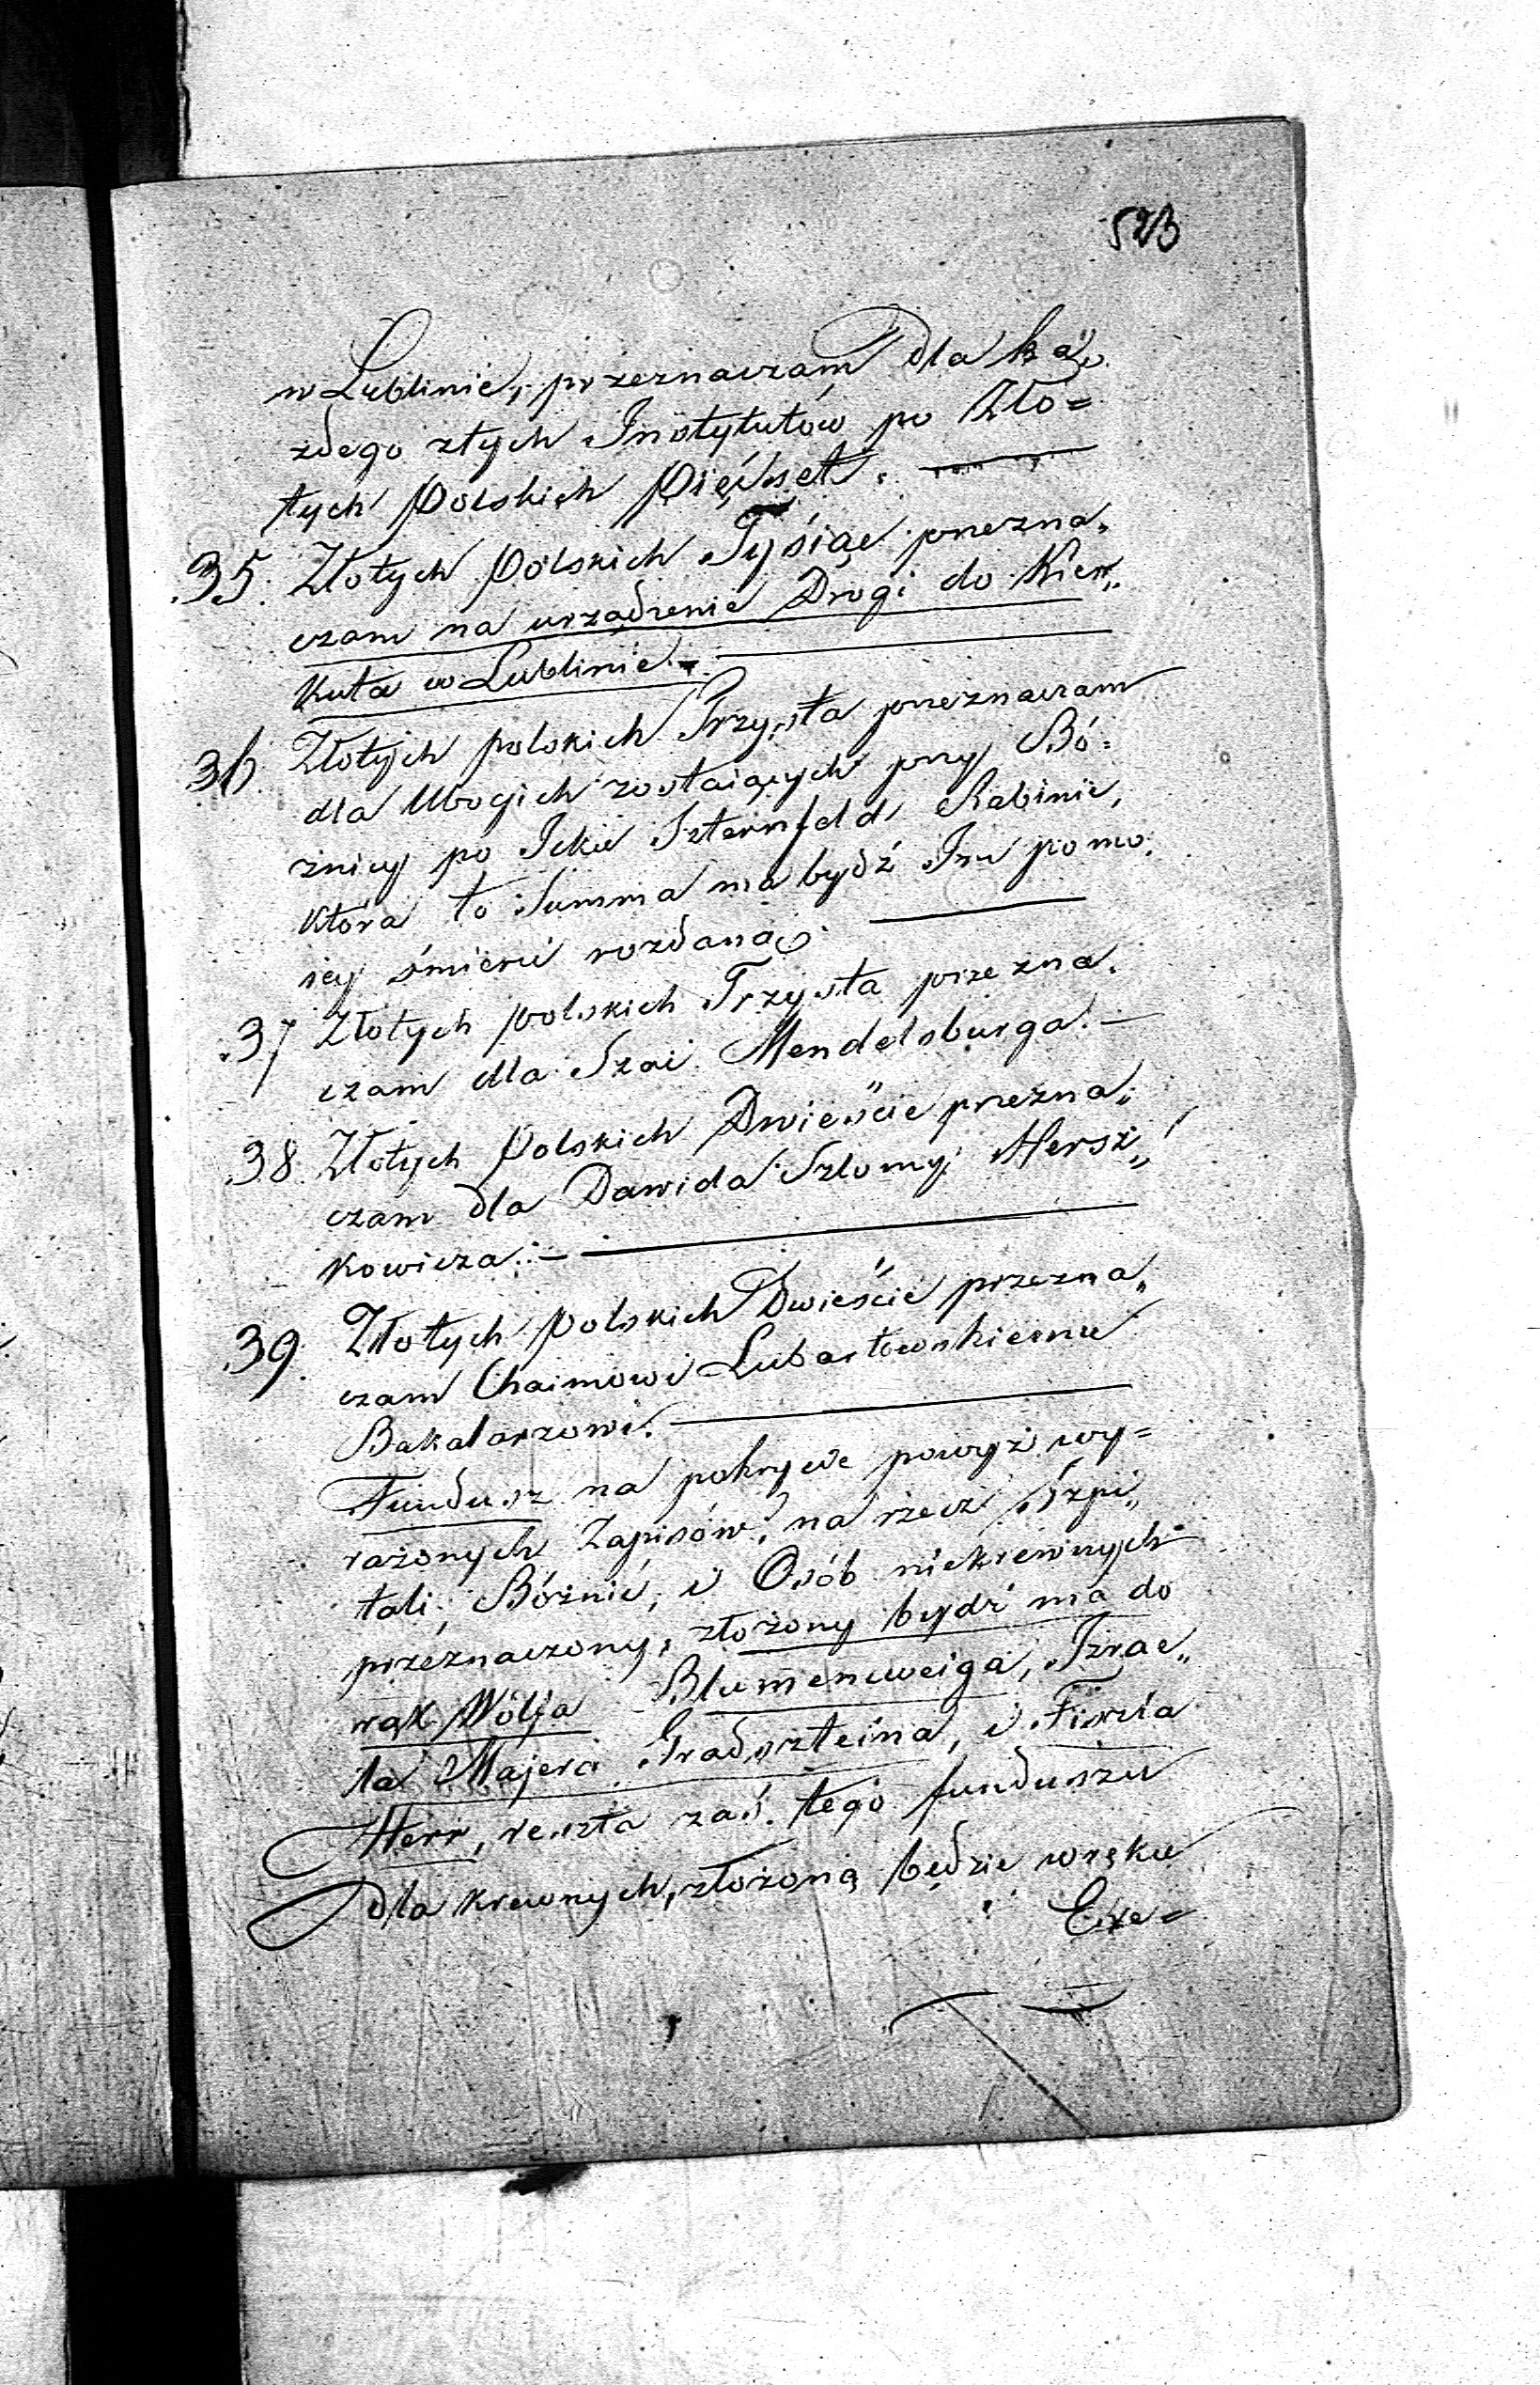 523
w Lublinie, przeznaczam dla ka„
żdego z tych Instytutów po Zło=
tych Polskich Pięćset.
35. Złotych Polskich Tysiąc przezna„
czam na urządzenie Drogi do Kier„
kuta w Lublinie.
36. Złotych polskich Trzysta przeznaczam
dla Ubogich zostaiących przy Bó=
żnicy po Icku Szternfeld Rabinie,
która to Summa ma bydź Im po mo„
iey śmierci rozdaną.
37 Złotych polskich Trzysta przezna„
czam dla Szai Mendelsburga.
38. Złotych Polskich Dwieście przezna„
czam dla Dawida Szlomy Hersz„
kowicza.
39. Złotych polskich Dwieście przezna„
czam Chaimowi Lubartowskiemu
Bakalarzowi.
Fundusz na pokrycie powyż wy=
rażonych Zapisów, na rzecz Szpi„
tali, Bóżnic, i Osób niekrewnych
przeznaczony, złożony bydź ma do
rąk Wolfa Blumencweiga, Izrae„
la Majera Gradszteina, i Fiszla
Herr, reszta zaś tego funduszu
dla krewnych, złożoną będzie w ręku
Exe=